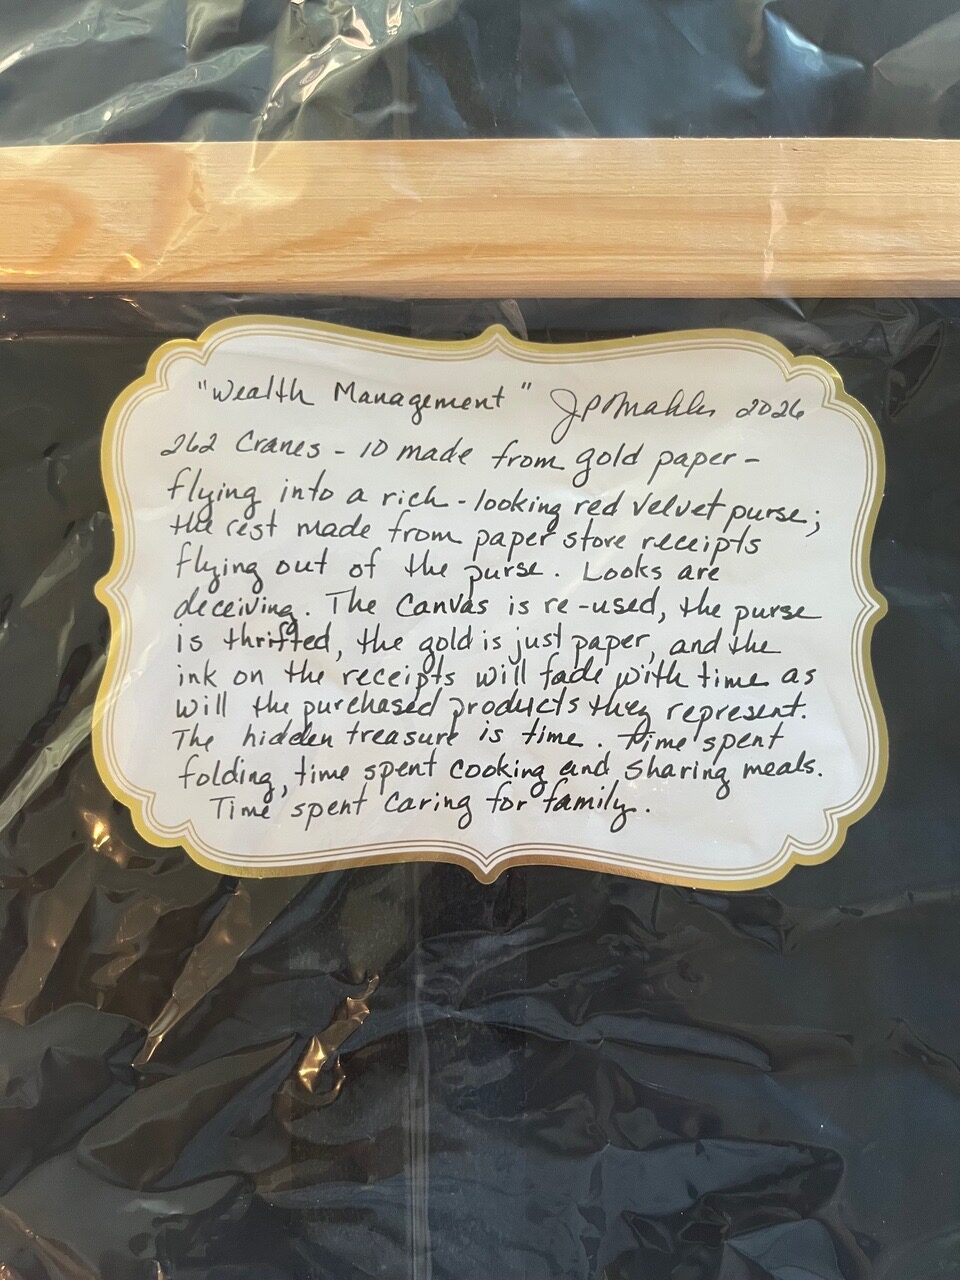 "Wealth Management" JP Mahler 2026
262 Cranes - 10 made from gold paper -
flying into a rich-looking red velvet purse;
the rest made from paper store receipts
flying out of the purse. Looks are
deceiving. The canvas is re-used, the purse
is thrifted, the gold is just paper, and the
ink on the receipts will fade with time as
will the purchased products they represent.
The hidden treasure is time. Time spent
folding, time spent cooking and sharing meals.
Time spent caring for family.